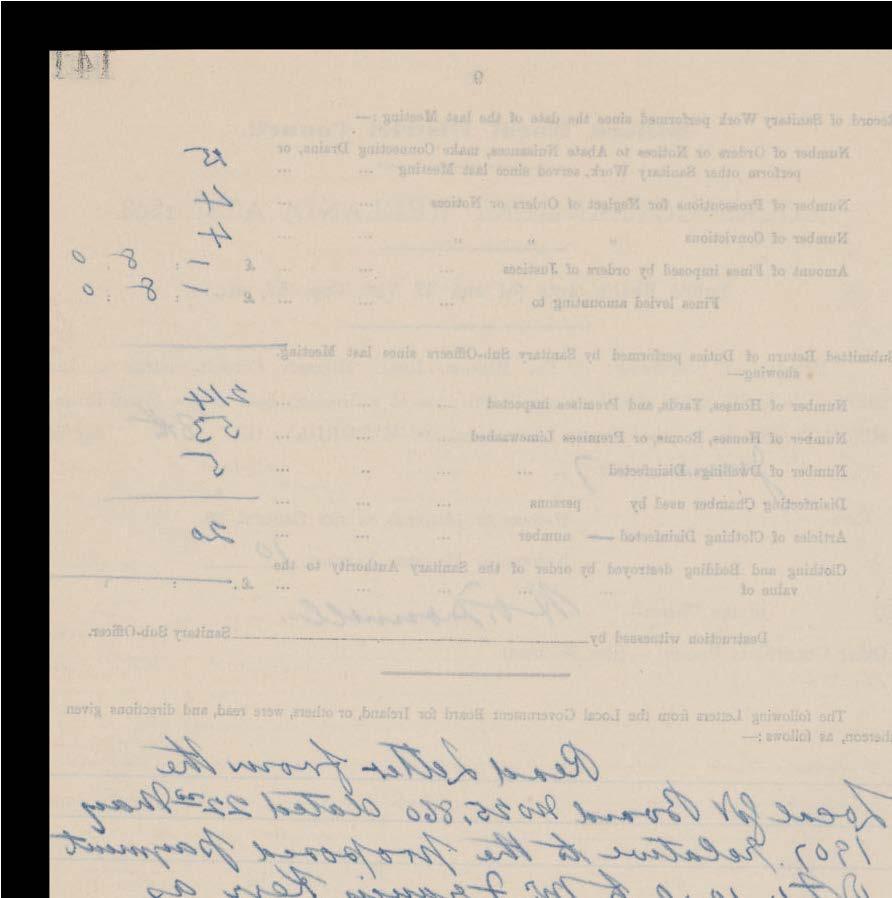 Record of Sanitary Work performed since the date of the last Meeting :—
Number of Orders or Notices to Abate Nuisances, make Connecting Drains, or
perform other Sanitary Work, served since last Meeting ... ... 5
Number of Prosecutions for Neglect of Orders or Notices ... ... 4
Number of Convictions " " " ... ... 4
Amount of Fines imposed by orders of Justices ... ... ... £ 1 : 8 : 0
Fines levied amounting to ... ... ... £ 1 : 8 : 0
Submitted Return of Duties performed by Sanitary Sub-Officers since last Meeting,
showing—
Number of Houses, Yards, and Premises inspected ... ... ... 214
Number of Houses, Rooms, or Premises Limewashed ... ... ... 53
Number of Dwellings Disinfected ... ... ... 5
Disinfecting Chamber used by persons ... ... ...
Articles of Clothing Disinfected — number ... ... ... 20
Clothing and Bedding destroyed by order of the Sanitary Authority to the
value of ... ... ... ... £ : :
Destruction witnessed by Sanitary Sub-Officer.
The following Letters from the Local Government Board for Ireland, or others, were read, and directions given
thereon, as follows :—
Read Letter from the
Local Gt Board No 25,860 dated 22nd May
1907 relative to the proposed payment